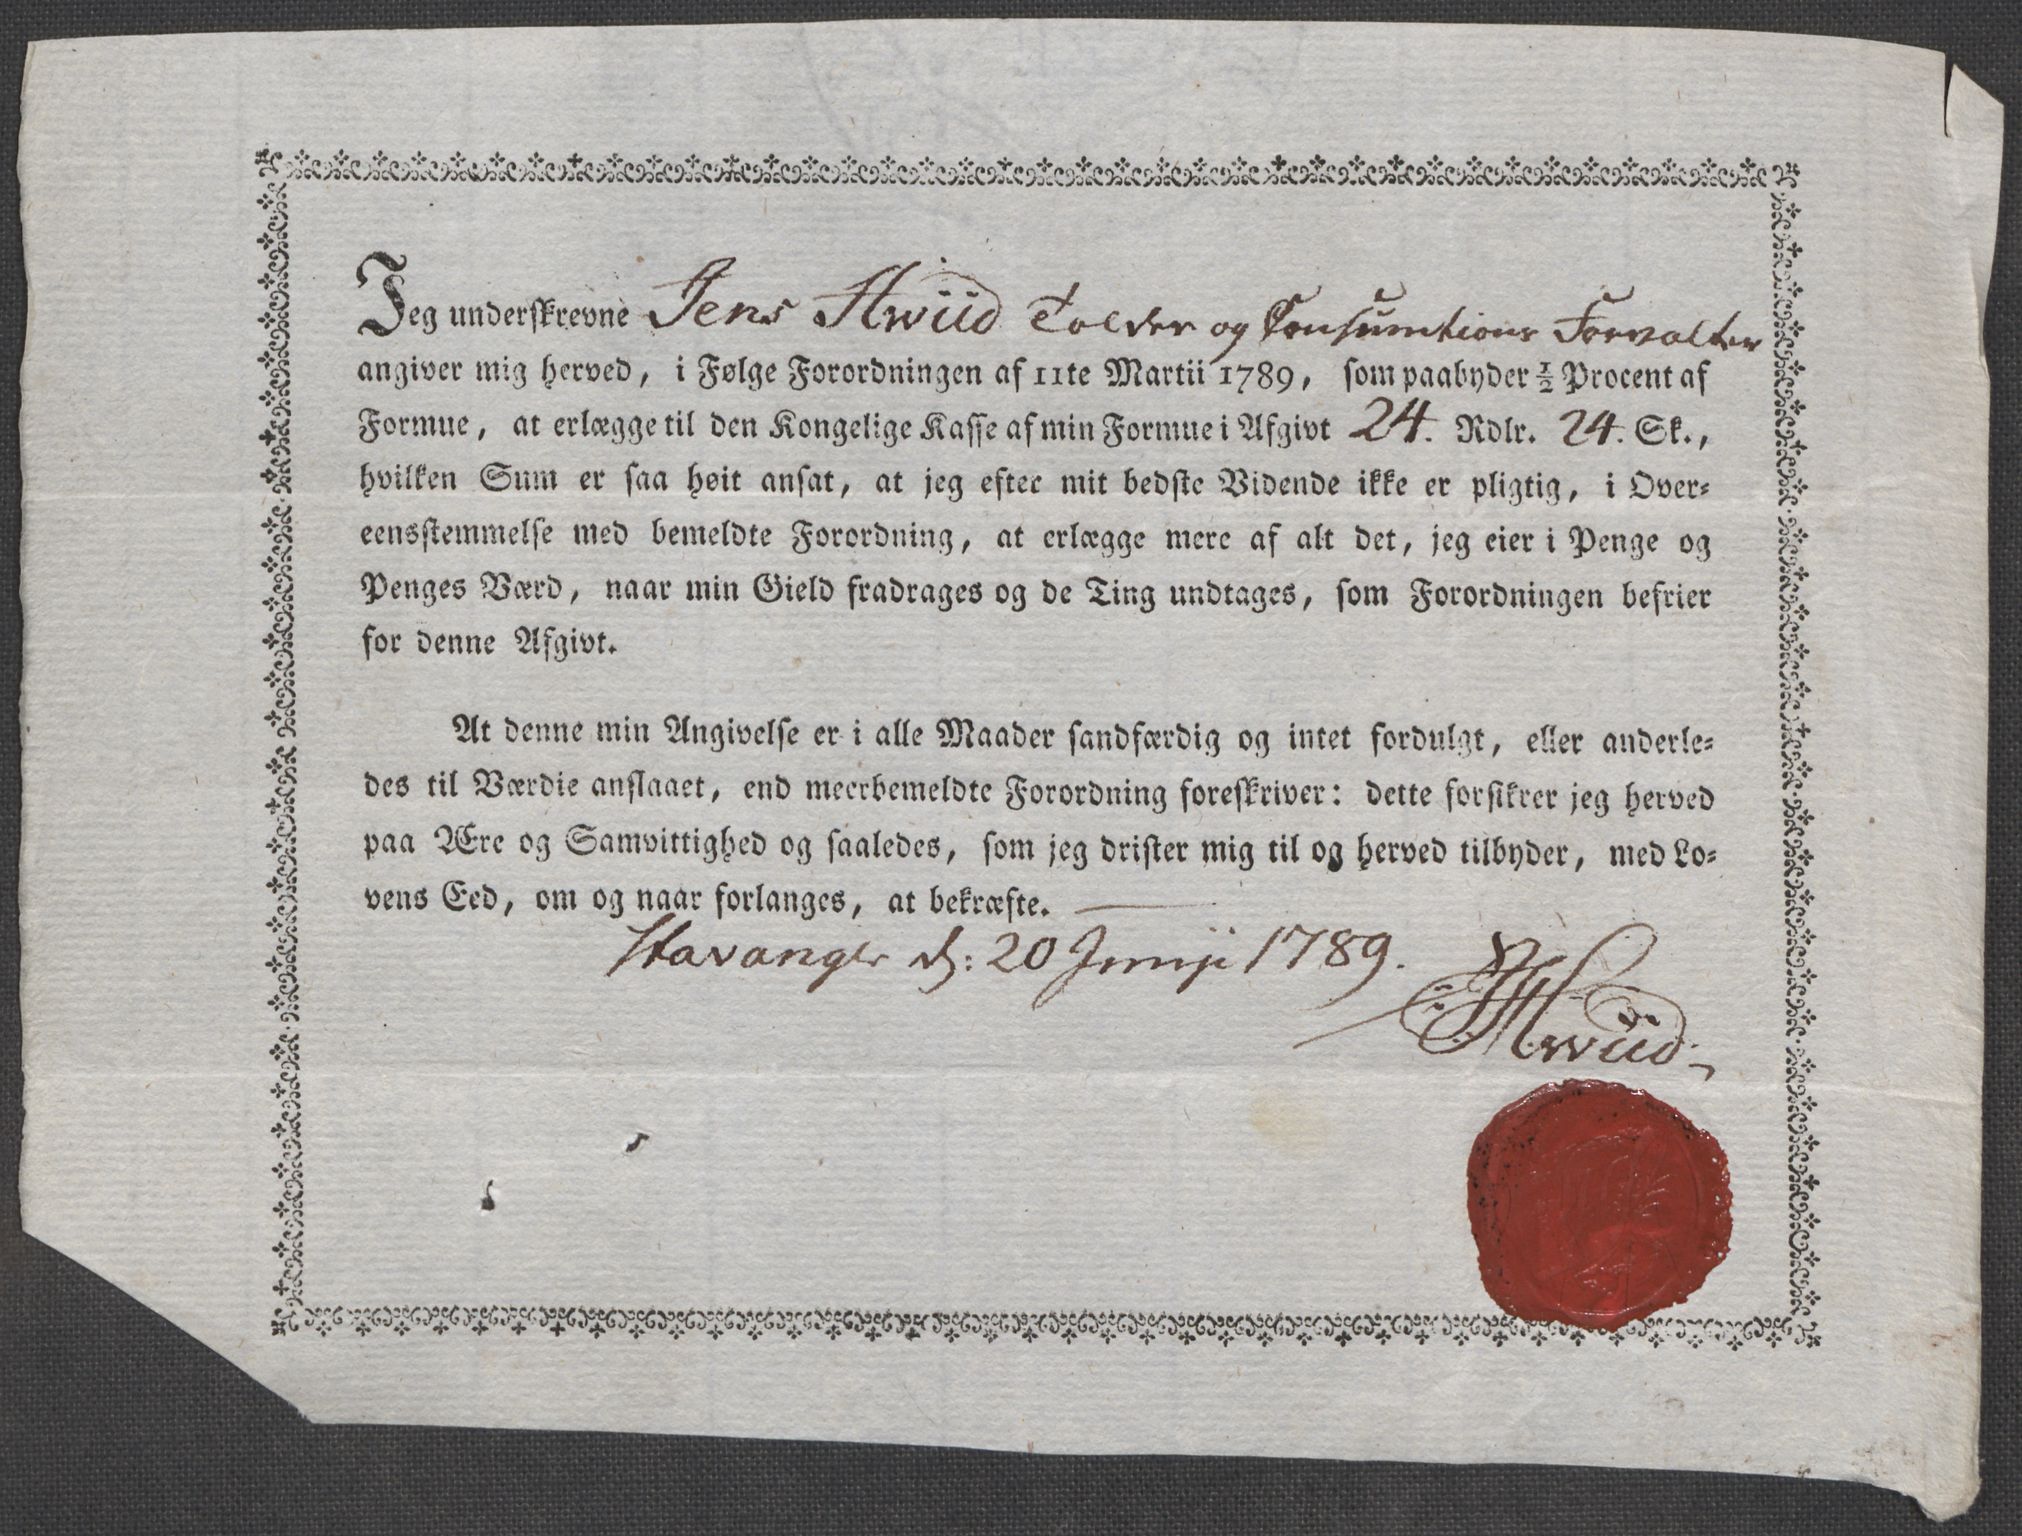 Jeg underskrevne Jens Hwiid Tolder og Consumtions Forvalter
angiver mig herved, i Følge Forordningen af 11te Martii 1789, som paabyder ½ Procent af
Formue, at erlægge til den Kongelige Kasse af min Formue i Afgivt 24. Rdlr. 24. Sk.,
hvilken Sum er saa høit ansat, at jeg efter mit bedste Vidende ikke er pligtig, i Over-
eensstemmelse med bemeldte Forordning, at erlægge mere af alt det, jeg eier i Penge og
Penges Værd, naar min Gield fradrages og de Ting undtages, som Forordningen befrier
for denne Afgivt.
At denne min Angivelse er i alle Maader sandfærdig og intet fordulgt, eller anderle-
des til Værdie anslaaet, end meerbemeldte Forordning foreskriver: dette forsikrer jeg herved
paa Ære og Samvittighed og saaledes, som jeg drister mig til og herved tilbyder, med Lo-
vens Eed, om og naar forlanges, at bekræfte.
Stavanger d: 20 Junji 1789.
JHwiid